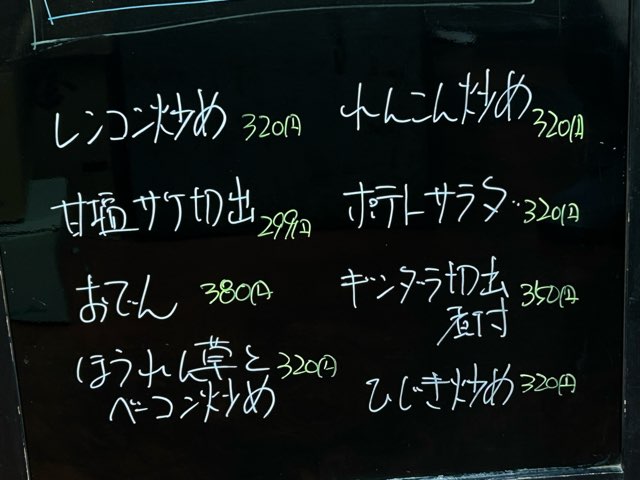 レンコン炒め 320円
甘塩サケ切出 299円
おでん 380円
ほうれん草と 320円
ベーコン炒め
れんこん炒め 320円
ポテトサラダ 320円
ギンダラ切出 350円
煮付
ひじき炒め 320円